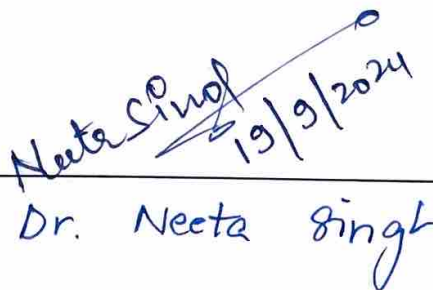 Neeta Singh
19/9/2024
Dr. Neeta Singh